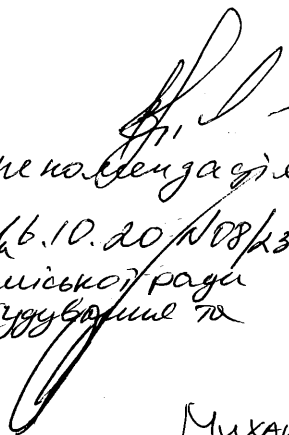 рекомендація
26.10.20 №08/23
міської ради
будування та
Михай